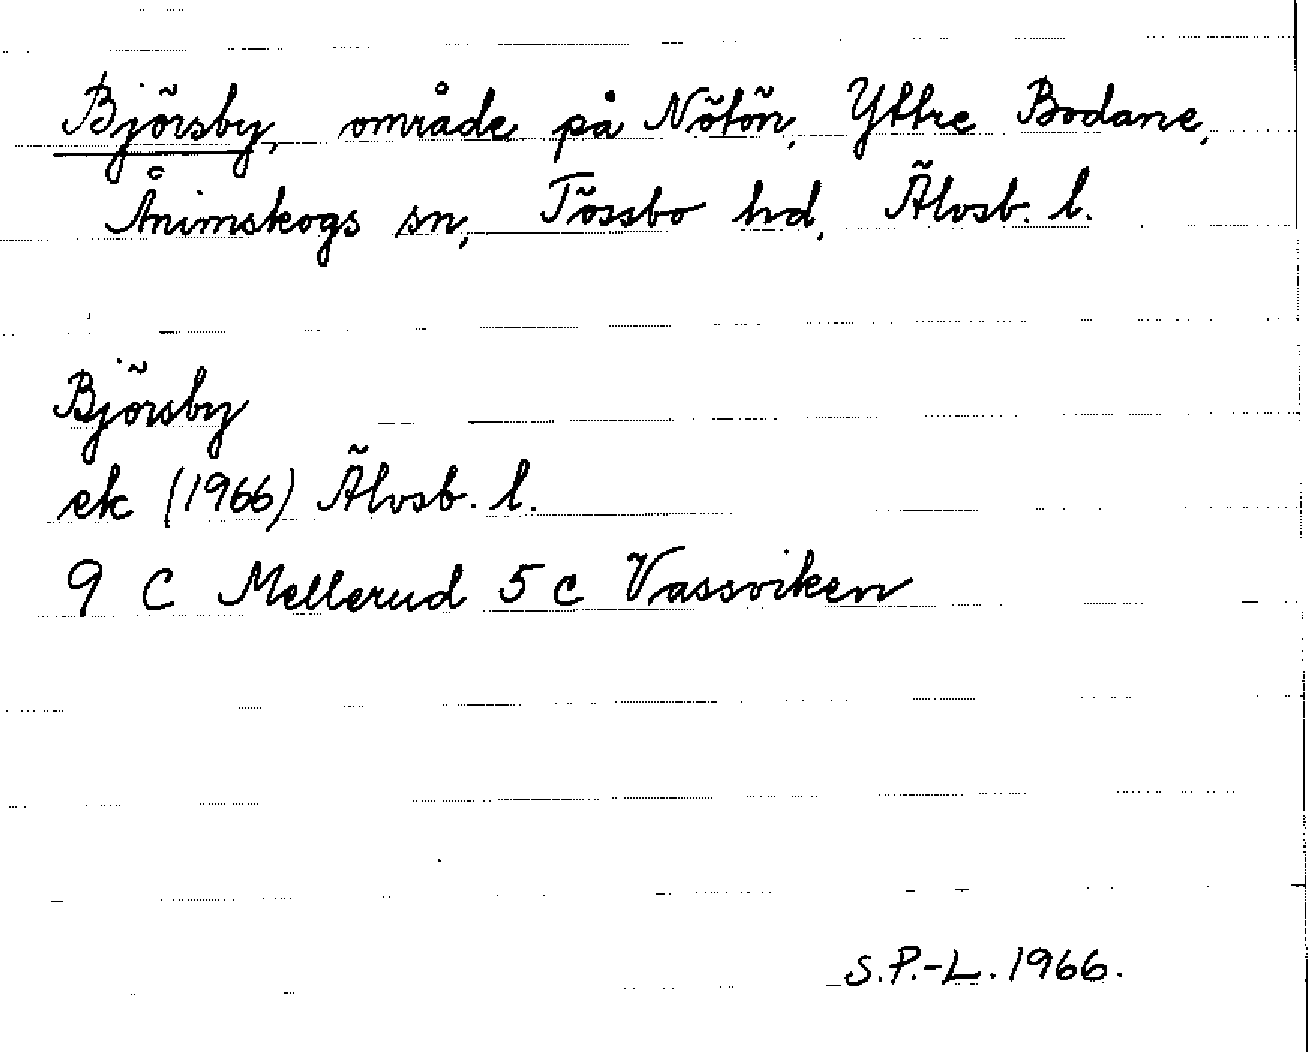 Björsby, område på Nötön, Yttre Bodane,
Ånimskogs sn, Tössbo hd, Älvsb. l.
Björsby
ek (1966) Älvsb. l.
9 C Mellerud 5 c Vassviken
S.P.-L. 1966.